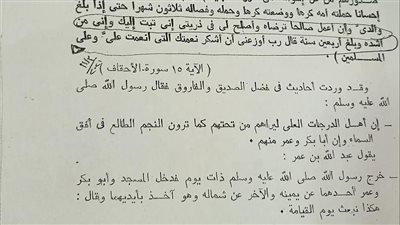 إحسانا حملته أمه كرها ووضعته كرها وحمله وفصاله ثلاثون شهرا حتى إذا بلغ
أشده وبلغ أربعين سنة قال رب أوزعنى أن أشكر نعمتك التى أنعمت علىّ وعلى
والدىّ وأن أعمل صالحا ترضاه وأصلح لى فى ذريتى إنى تبت إليك وإنى من
المسلمين )
( الآية ١٥ سورة، الأحقاف )
وقد وردت أحاديث فى فضل الصديق والفاروق فقال رسول الله صلى
الله عليه وسلم :
– إن أهل الدرجات العلى ليراهم من تحتهم كما ترون النجم الطالع فى أفق
السماء وإن أبا بكر وعمر منهم .
يقول عبد الله بن عمر :
– خرج رسول الله صلى الله عليه وسلم ذات يوم فدخل المسجد وأبو بكر
وعمر أحدهما عن يمينه والآخر عن شماله وهو آخذ بأيديهما وقال :
هكذا نبعث يوم القيامة .